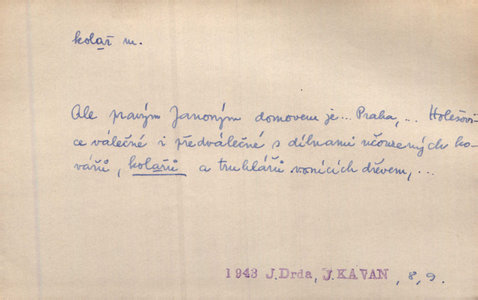 kolař m.
Ale pravým Janoným domovem je... Praha,... Holešovi-
ce válečné i předválečné s dílnami učouzených ko-
vářů, kolařů a truhlářů vonících dřevem,...
1943 J.Drda, J.KAVAN, 8, 9.